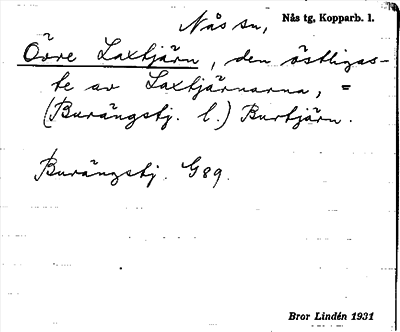 Nås sn, Nås tg, Kopparb. l.
Övre Laxtjärn, den östligas-
te av Laxtjärnarna, =
(Burängstj. l.) Burtjärn.
Burängstj. G89.
Bror Lindén 1931